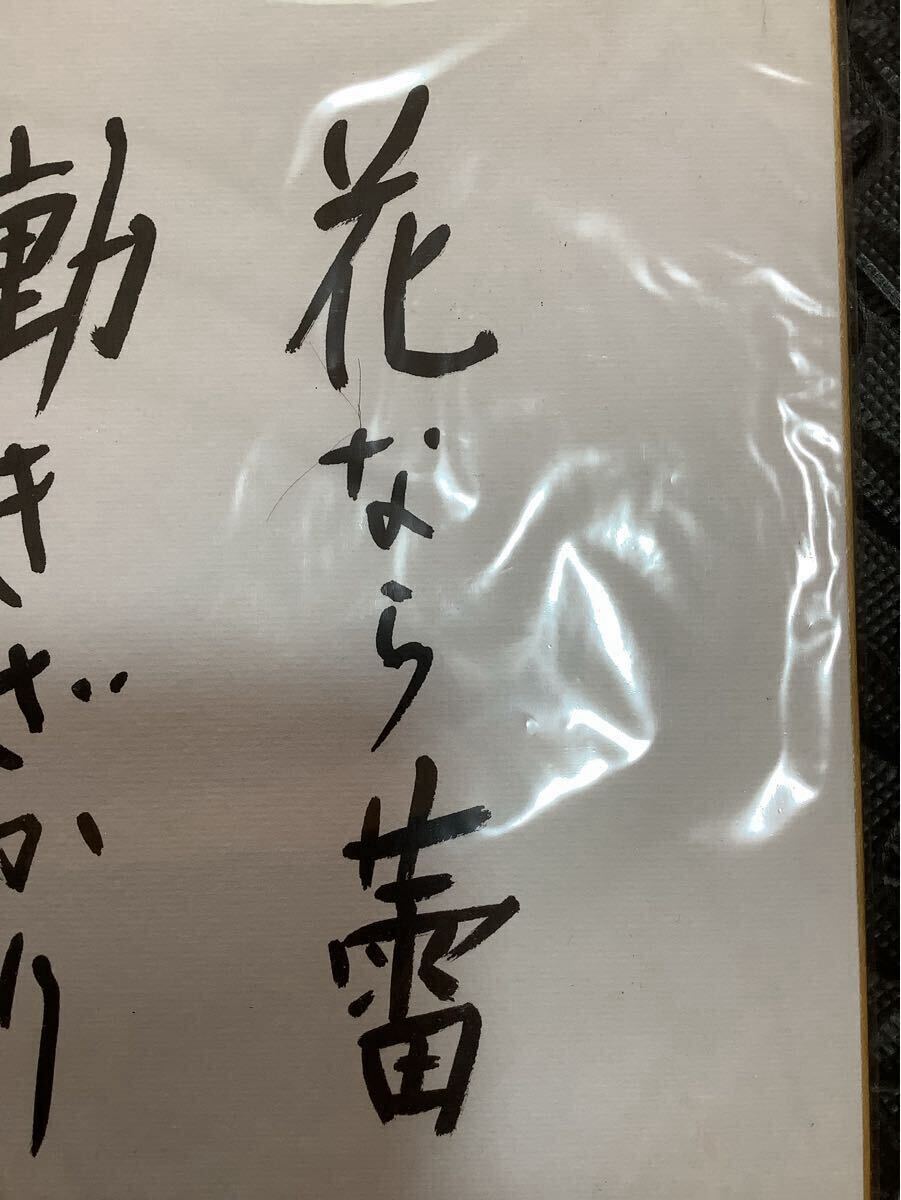 花なら蕾
働きざかり